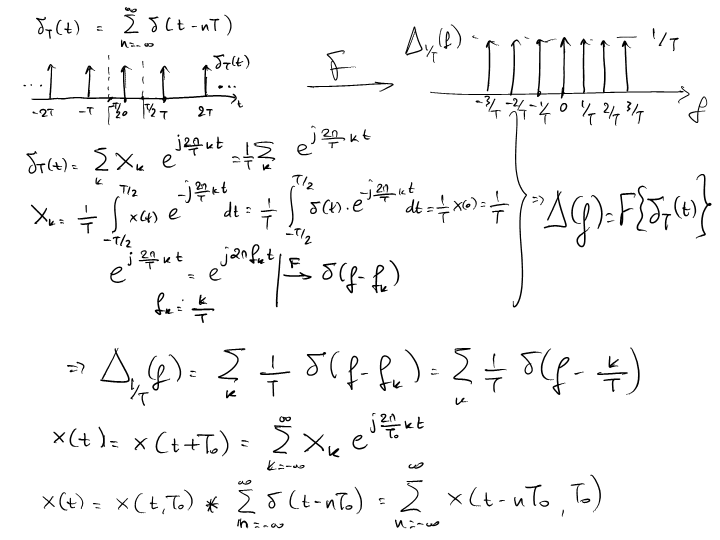 δ_T(t) = ∑_{n=-∞}^{∞} δ(t-nT)
δ_T(t)
... -2T -T -T/2 0 T/2 T 2T ... t
F
Δ_{1/T}(f) 1/T
-3/T -2/T -1/T 0 1/T 2/T 3/T f
δ_T(t) = ∑_k X_k e^{j 2π/T kt} = 1/T ∑_k e^{j 2π/T kt}
X_k = 1/T ∫_{-T/2}^{T/2} x(t) e^{-j 2π/T kt} dt = 1/T ∫_{-T/2}^{T/2} δ(t) · e^{-j 2π/T kt} dt = 1/T x(0) = 1/T
⇒ Δ(f) = F{δ_T(t)}
e^{j 2π/T kt} = e^{j2πf_k t} | F → δ(f-f_k)
f_k = k/T
⇒ Δ_{1/T}(f) = ∑_k 1/T δ(f-f_k) = ∑_k 1/T δ(f - k/T)
x(t) = x(t+T₀) = ∑_{k=-∞}^{∞} X_k e^{j 2π/T₀ kt}
x(t) = x(t,T₀) * ∑_{n=-∞}^{∞} δ(t-nT₀) = ∑_{n=-∞}^{∞} x(t-nT₀, T₀)